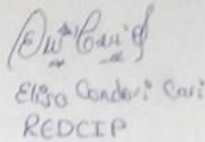 Eliso Condori Cari
REDCIP